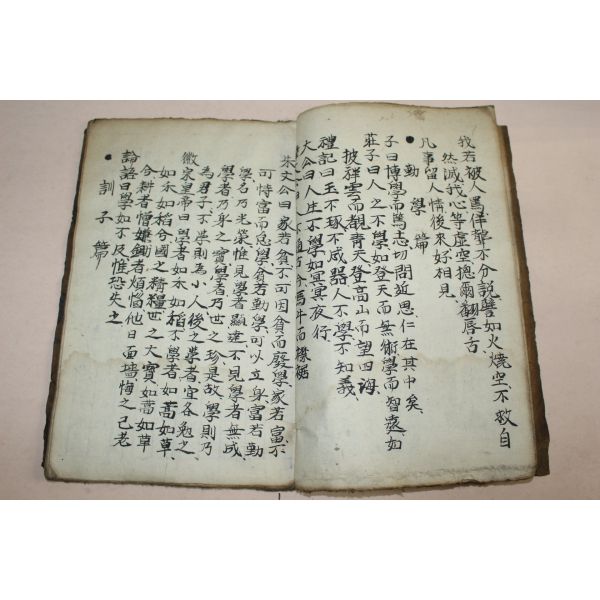 我若被人罵佯聾不分說譬如火燒空不救自
然滅我心等虛空摠爾飜脣舌
凡事留人情後來好相見
勤學篇
子曰博學而篤志切問近思仁在其中矣
莊子曰人之不學如登天而無術學而智遠如
披祥雲而覩靑天登高山而望四海
禮記曰玉不琢不成器人不學不知義
太公曰人生不學如冥冥夜行
馬牛而襟裾
朱文公曰家若貧不可因貧而廢學家若富不
可恃富而怠學貧若勤學可以立身富若勤
學名乃光榮惟見學者顯達不見學者無成
學者乃身之寶學者乃世之珍是故學則乃
爲君子不學則爲小人後之學者宜各勉之
徽宗皇帝曰學者如禾如稻不學者如蒿如草
如禾如稻兮國之精糧世之大寶如蒿如草
兮耕者憎嫌鋤者煩惱他日面墻悔之已老
論語曰學如不及惟恐失之
訓子篇